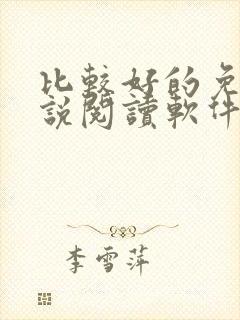 比較好的免
説閱讀軟件
李雪萍